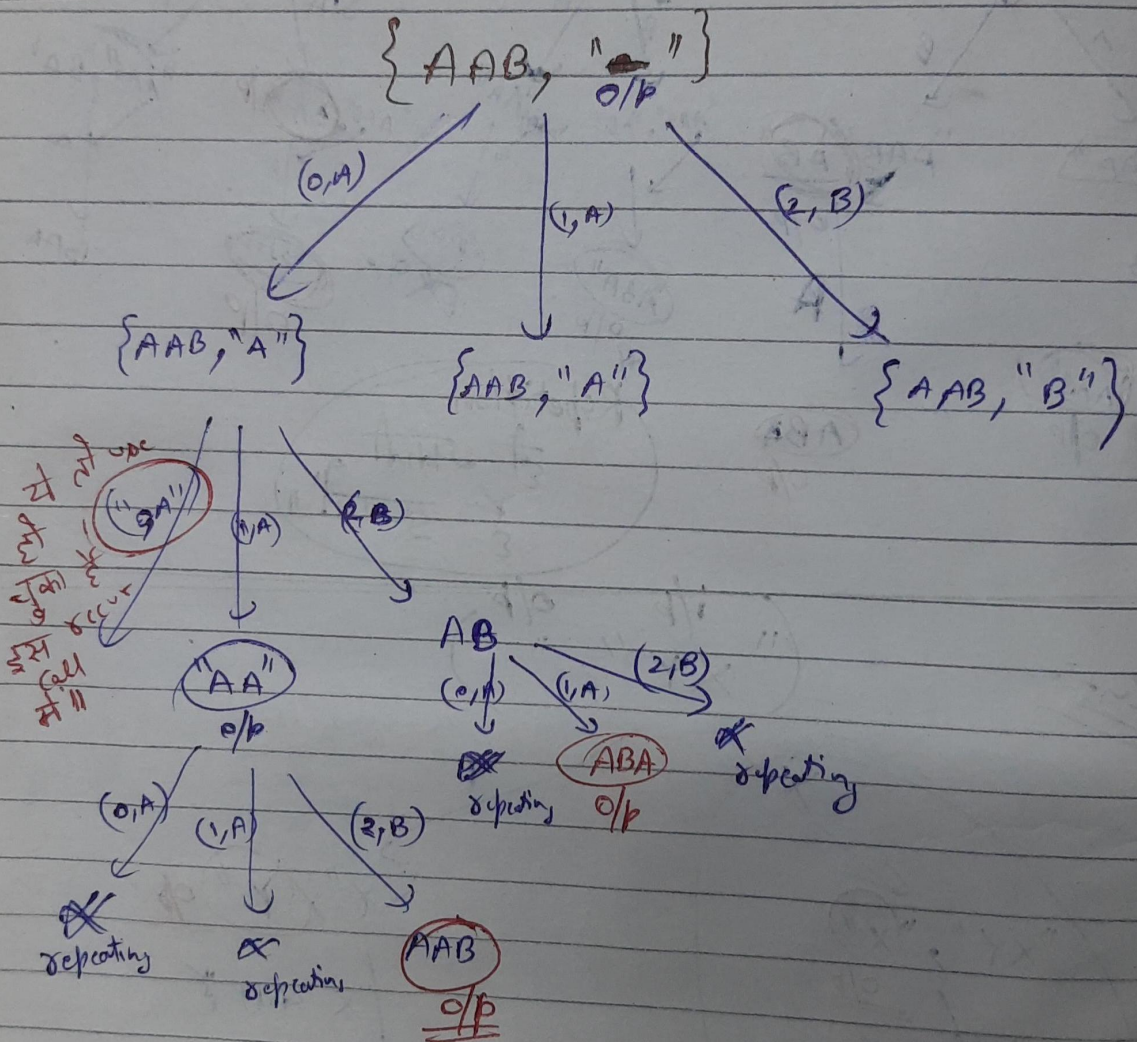 { AAB, " " }
o/p
(0,A)
(1,A)
(2, B)
{AAB,"A"}
{AAB,"A"}
{ AAB, "B" }
("0,A")
(1,A)
(2,B)
recur
call
में"
"AA"
o/p
AB
(0,A)
(1,A)
(2,B)
repeating
ABA
o/p
repeating
(0,A)
(1,A)
(2,B)
repeating
repeating
AAB
o/p